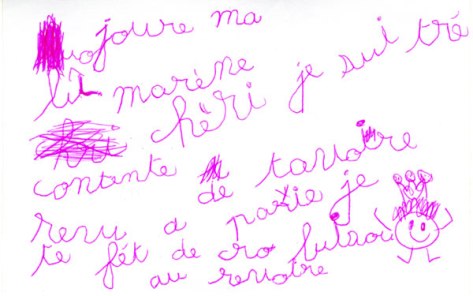 joure ma
marène
chèri je sui tré
contante de tavoire
revu a parie je
te fét de cro
au revoire